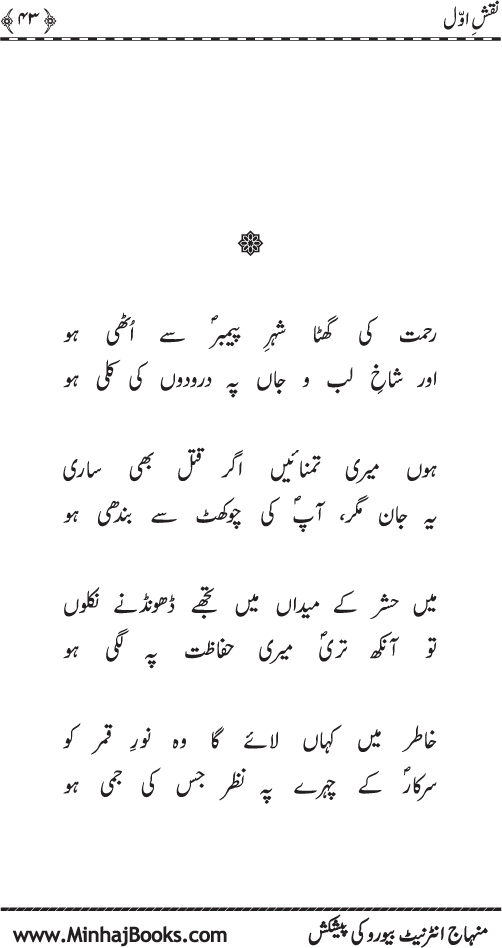 نقشِ اوّل ﴿۴۳﴾
رحمت کی گھٹا شہرِ پیمبرؐ سے اُٹھی ہو
اور شاخِ لب و جاں پہ درودوں کی کلی ہو
ہوں میری تمنائیں اگر قتل بھی ساری
یہ جان مگر، آپؐ کی چوکھٹ سے بندھی ہو
میں حشر کے میداں میں تجھے ڈھونڈنے نکلوں
تو آنکھ تریؐ میری حفاظت پہ لگی ہو
خاطر میں کہاں لائے گا وہ نورِ قمر کو
سرکارؐ کے چہرے پہ نظر جس کی جمی ہو
منہاج انٹرنیٹ بیورو کی پیشکش www.MinhajBooks.com